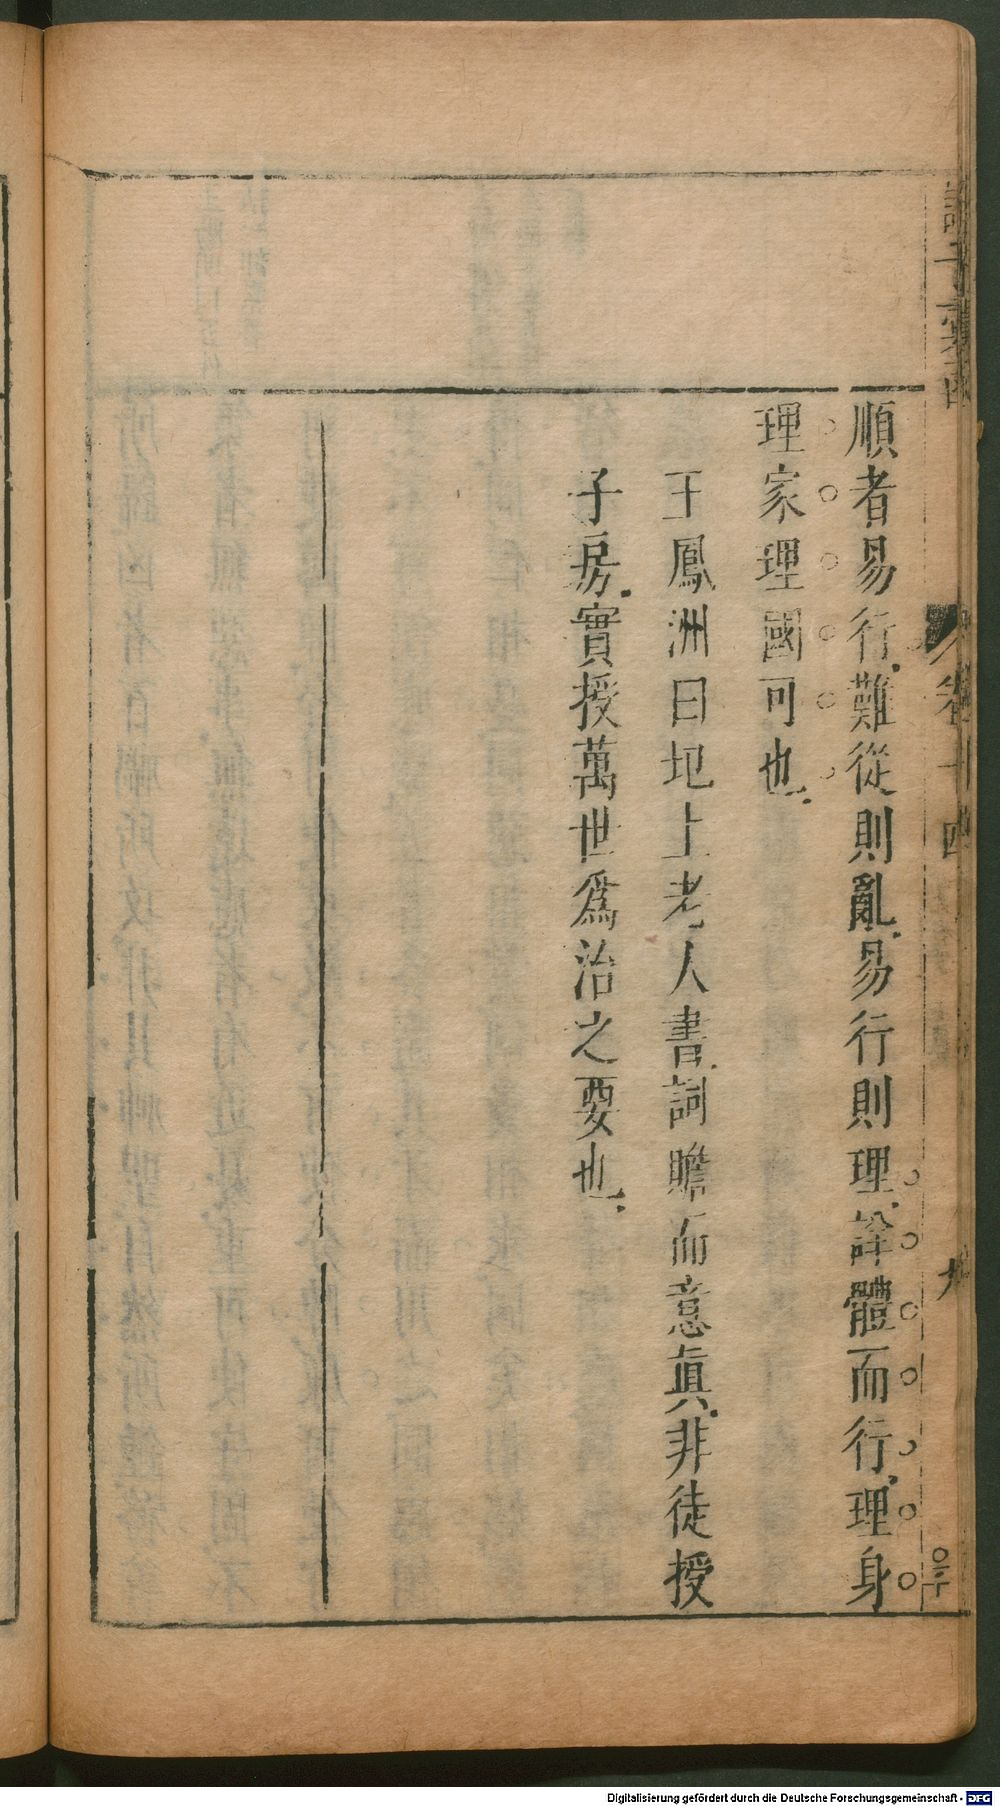 順者易行難從則亂易行則理詳體而行理身
理家理國可也
王鳳洲曰圯上老人書詞贍而意眞非徒授
子房實授萬世爲治之要也
卷十四
九
Digitalisierung gefördert durch die Deutsche Forschungsgemeinschaft - DFG